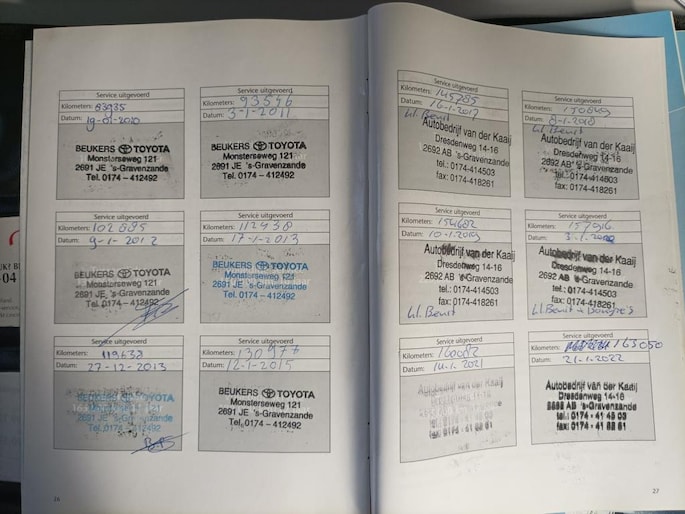 Service uitgevoerd
Kilometers: 83935
Datum: 19-01-2010
BEUKERS TOYOTA
Monsterseweg 121
2691 JE 's-Gravenzande
Tel. 0174 – 412492
Service uitgevoerd
Kilometers: 93546
Datum: 3-1-2011
BEUKERS TOYOTA
Monsterseweg 121
2691 JE 's-Gravenzande
Tel. 0174 – 412492
Service uitgevoerd
Kilometers: 102885
Datum: 9-1-2012
BEUKERS TOYOTA
Monsterseweg 121
2691 JE 's-Gravenzande
Tel. 0174 – 412492
Service uitgevoerd
Kilometers: 112438
Datum: 17-1-2013
BEUKERS TOYOTA
Monsterseweg 121
2691 JE 's-Gravenzande
Tel. 0174 – 412492
Service uitgevoerd
Kilometers: 119638
Datum: 27-12-2013
TOYOTA
121
2691 JE 's-Gravenzande
Tel. 0174 – 412492
Service uitgevoerd
Kilometers: 130977
Datum: 12-1-2015
BEUKERS TOYOTA
Monsterseweg 121
2691 JE 's-Gravenzande
Tel. 0174 – 412492
26
Service uitgevoerd
Kilometers: 145785
Datum: 16-1-2017
Autobedrijf van der Kaaij
Dresdenweg 14-16
2692 AB 's-Gravenzande
tel.: 0174-414503
fax: 0174-418261
Service uitgevoerd
Kilometers:
Datum: 8-1-2018
Autobedrijf van der Kaaij
Dresdenweg 14-16
2692 AB 's-Gravenzande
tel.: 0174-414503
fax: 0174-418261
Service uitgevoerd
Kilometers: 154682
Datum: 10-1-2019
Autobedrijf van der Kaaij
Dresdenweg 14-16
2692 AB 's-Gravenzande
tel.: 0174-414503
fax: 0174-418261
Kl. Beurt
Service uitgevoerd
Kilometers: 157916
Datum: 3-1-2020
Autobedrijf van der Kaaij
Dresdenweg 14-16
2692 AB 's-Gravenzande
tel.: 0174-414503
fax: 0174-418261
Kl. Beurt + Bougie's
Service uitgevoerd
Kilometers: 160082
Datum: 14-1-2021
Autobedrijf van der Kaaij
Dresdenweg 14-16
2692 AB 's-Gravenzande
Service uitgevoerd
Kilometers: 163050
Datum: 21-1-2022
Autobedrijf van der Kaaij
Dresdenweg 14-16
2692 AB 's-Gravenzande
tel.: 0174 - 41 45 03
fax: 0174 - 41 82 61
27